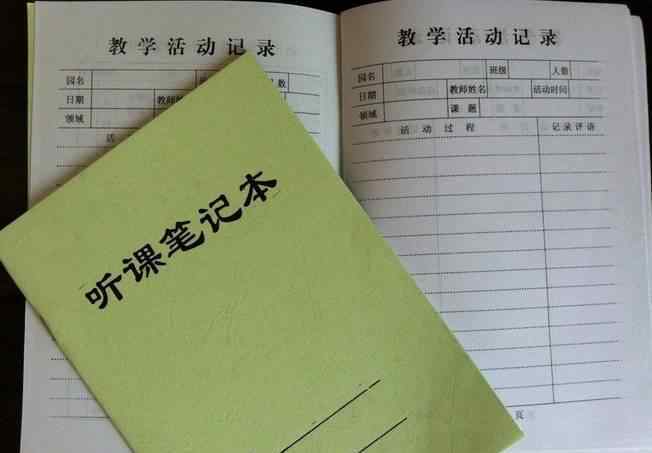 教学活动记录
园名
日期 教师姓名
领域
活
教学活动记录
园名 班级 人数
日期 教师姓名 活动时间
领域 课题
活动过程 记录评语
页
听课笔记本